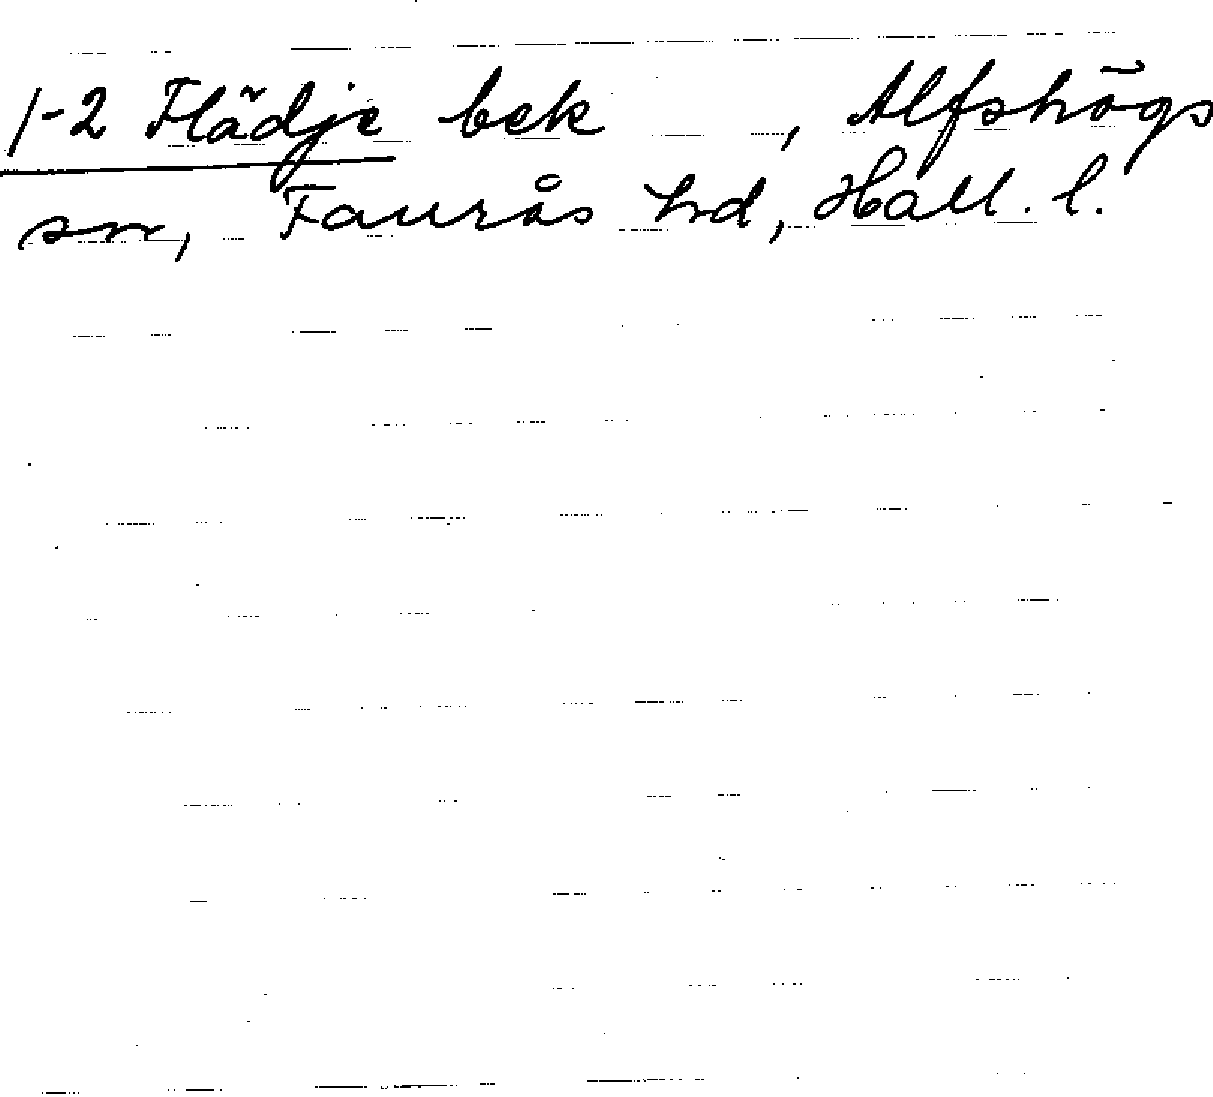 1-2 Flädje bek , Alfshögs
sn, Faurås hd, Hall. l.